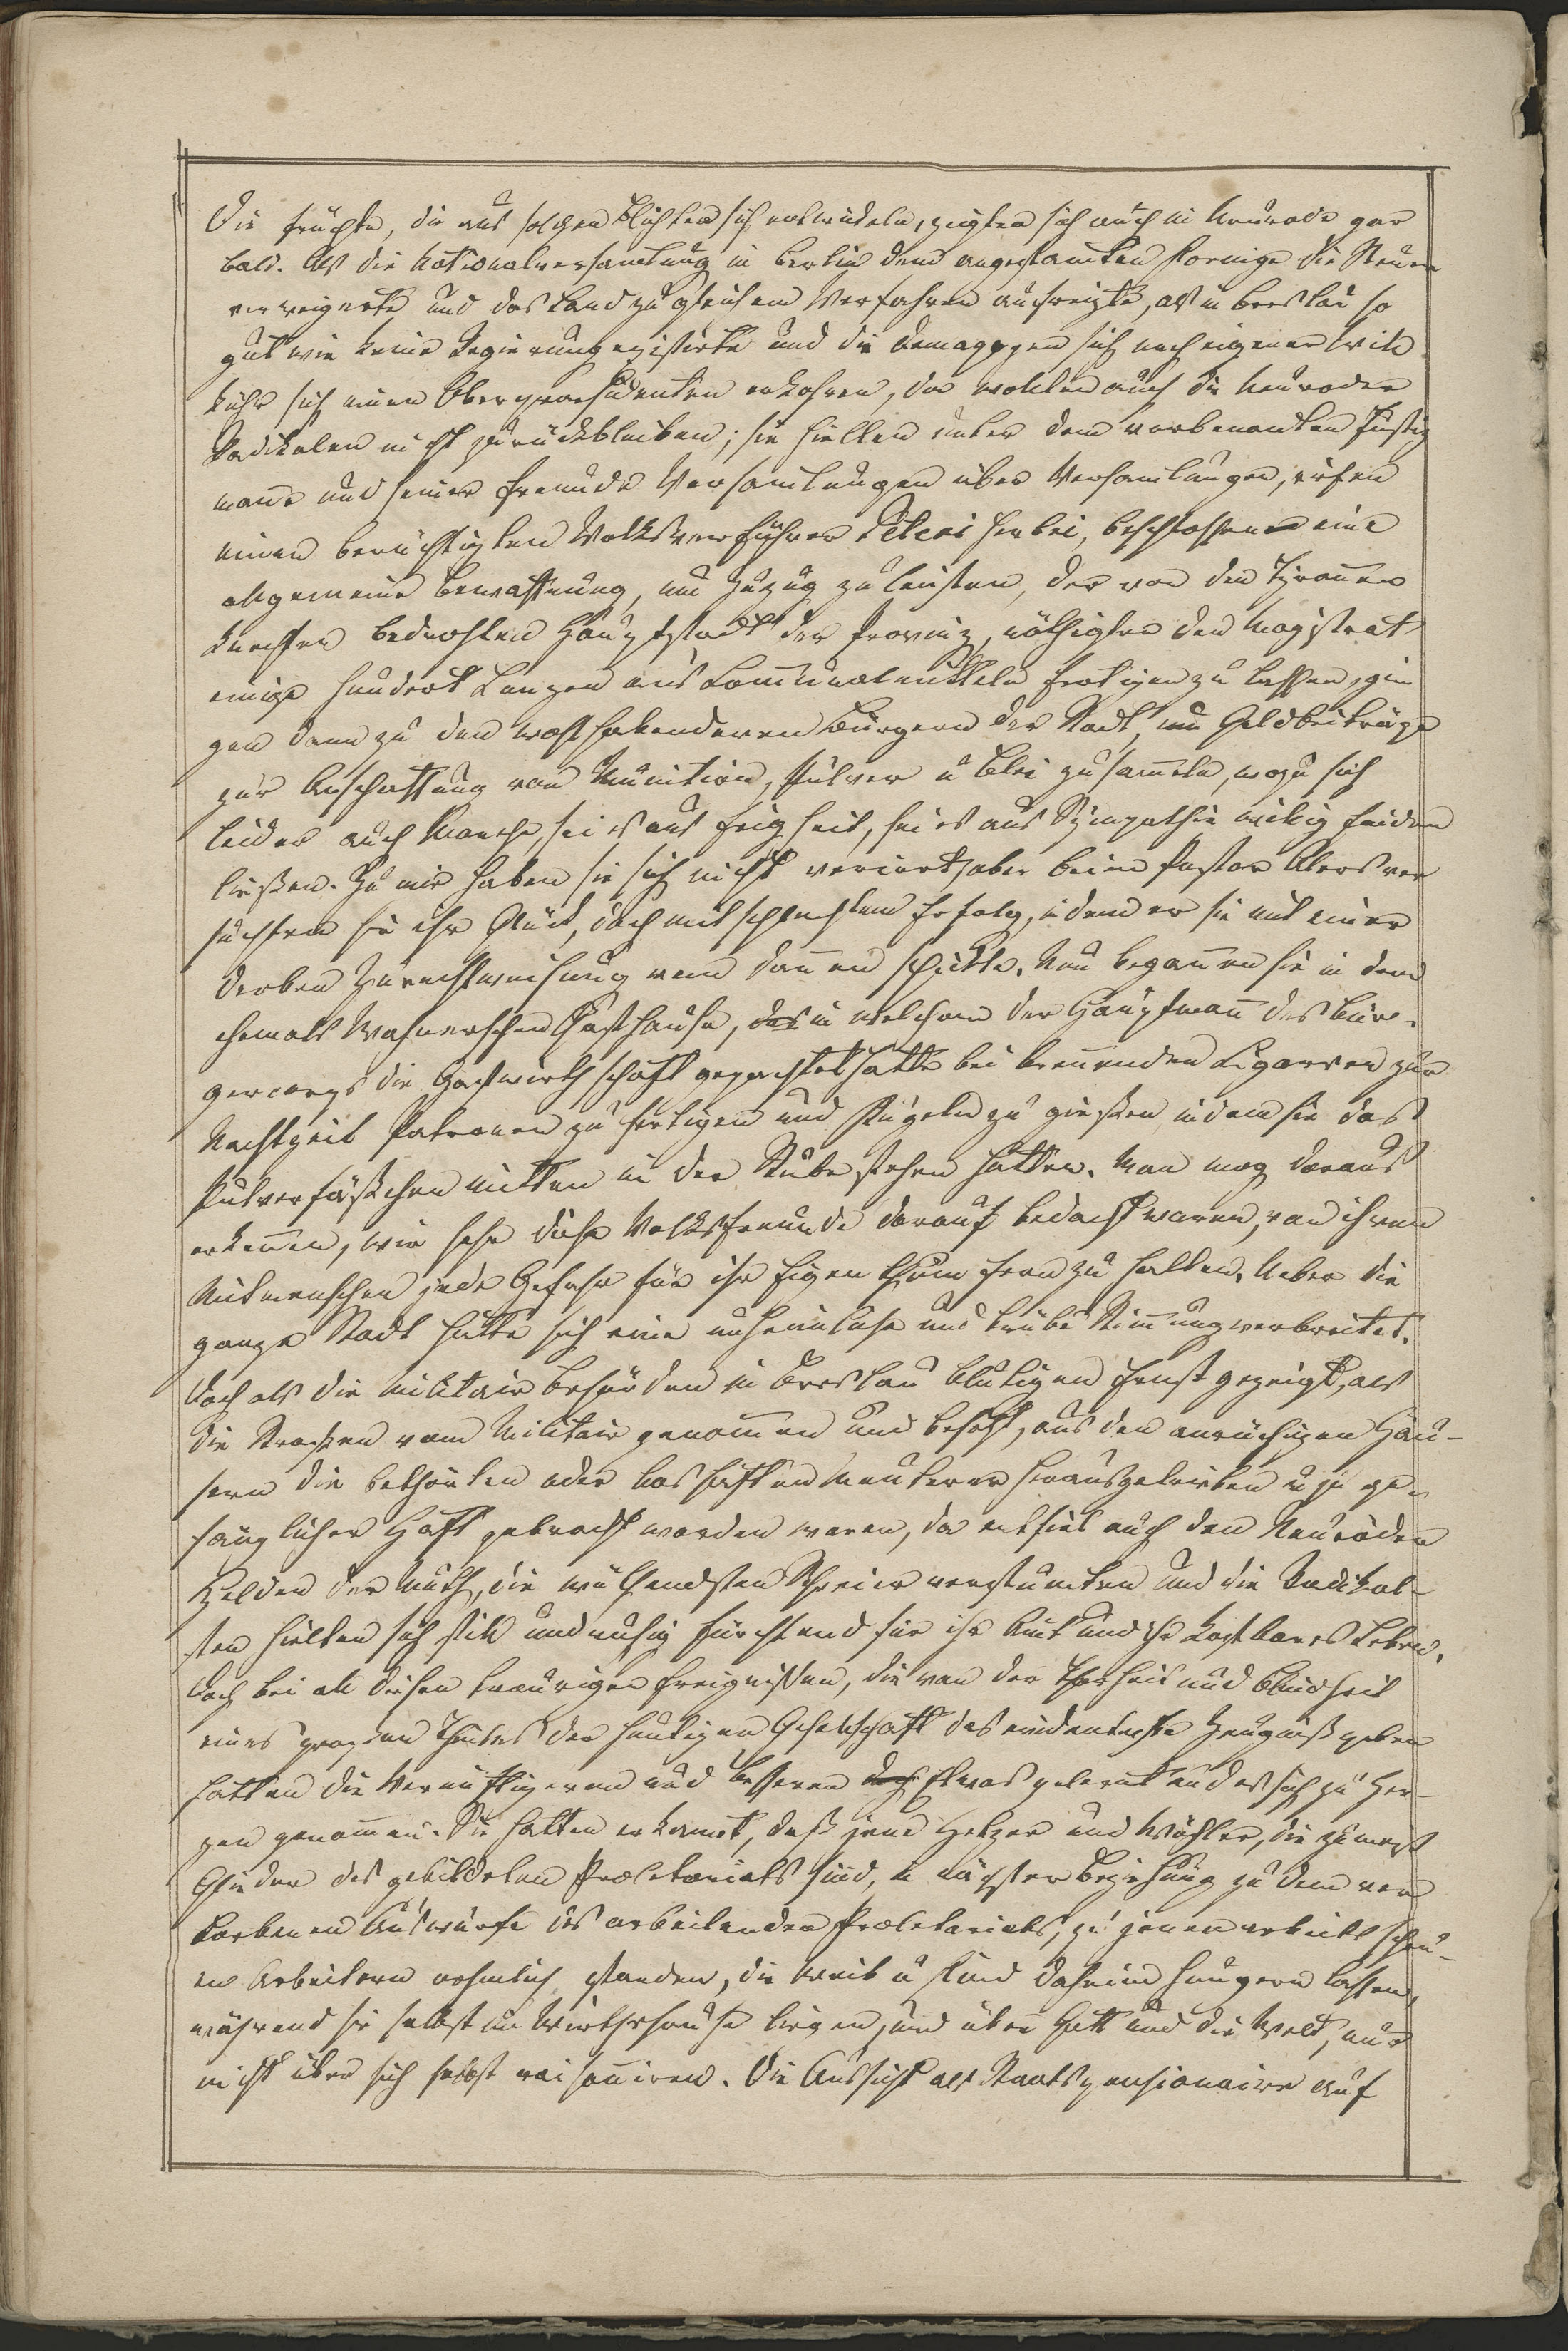 Die Früchte, die aus solchen Blüthen sich entwickeln, zeigten sich auch in Neurode gar
bald. Als die Nationalversamlung in Berlin dem angestamten Koenige die Steuern
verweigerte und das Land zu gleichem Verfahren aufreizte, als in Breslau so
gut wie keine Regierung existirte und die Demagogen sich nach eigener Will
kühr sich einen Oberpraesidenten erkohren, da wollten auch die Neuroder
Radikalen nicht zurückbleiben; sie hielten unter dem vorbenanten
und seiner Freunde Versamlungen über Versamlungen, riefen
einen berüchtigten Volksverführer Peteri herbei, beschlossen eine
allgemeine Bewaffnung, um Zuzug zu leisten, der von den Tyrannen
knechten bedrohten Hauptstadt der Provinz, nöthigten den Magistrat
einige hundert Lanzen aus Communalmitteln fertigen zu lassen, gin
gen dann zu den wohlhabenderen Bürgern der Stadt, um Geldbeiträge
zur Anschaffung von Munition, Pulver u Blei zu sammeln, wozu sich
leider auch Manche, sei es aus Feigheit, sei es aus Sympathie willig finden
ließen. Zu mir haben sie sich nicht verirrt, aber beim Pastor ver
suchten sie ihr Glück, doch mit schlechtem Erfolg, indem er sie mit einer
derben Zurechtweisung von dannen schickte. Nun begannen sie in dem
ehemals Gasthause, das in welchem der Hauptmann des Bür-
gercorps die Gastwirthschaft gepachtet hatte bei brennenden Cigarren zur
Nachtzeit Patronen zu fertigen und Kugeln zu gießen indem sie das
Pulverfäßchen mitten in der Stube stehen hatten. Man mag daraus
erkennen, wie sehr diese Volksfreunde darauf bedacht waren, von ihren
Mitmenschen jede Gefahr für ihr Eigenthum fern zu halten. Ueber die
ganze Stadt hatte sich eine unheimliche und trübe Stimmung verbreitet.
Doch als die Militair Behörden in Breslau blutigen Ernst gezeigt, als
die Strassen vom Militair genommen und besetzt, aus den anrüchigen Häu-
sern die bethörten oder boshaften Meuterer herausgetrieben u zu ge-
fänglicher Haft gebracht worden waren, da entfiel auch den Neuroder
Helden der Muth, die wüthendsten Schreier verstumten und die Radikal-
sten hielten sich still und ruhig fürchtend für ihr Amt und ihr kostbares Leben.
Doch bei all diesen traurigen Ereignißen, die von der Thorheit und Blindheit
eines grossen Theiles der heutigen Gesellschaft das evidenteste Zeugniß geben
hatten die Vernünftigeren und Besseren doch Etwas gelernt und es sich zu Her-
zen genommen. Sie hatten erkannt, daß jene Hetzer und Wühler, die zumeist
Glieder des gebildeten Proletariats sind, in nächster Beziehung zu dem ver
dorbenen Auswurfe des arbeitenden Proletariats, zu jenen arbeitsscheu-
en Arbeitern nehmlich standen, die Weib u Kind daheim hungern lassen,
während sie selbst im Wirthshause liegen, und über Gott und die Welt, nur
nicht über sich selbst raisonniren. Die Aussicht als Staatspensionaire auf